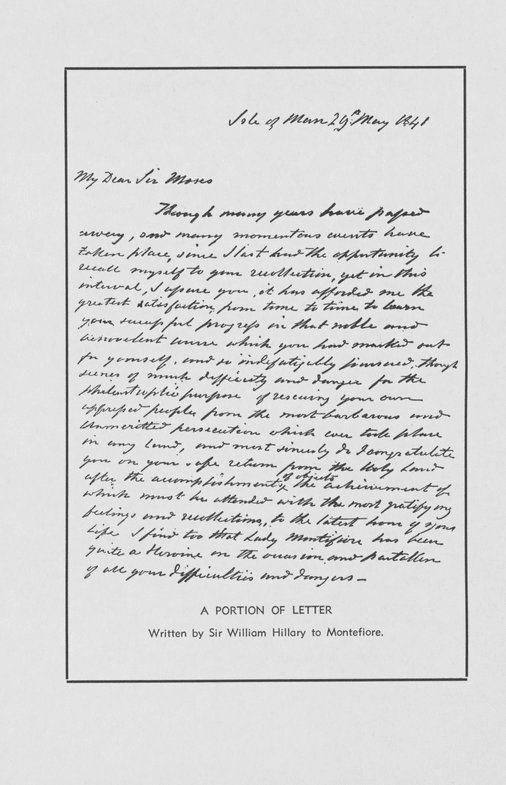 Isle of Man 29th May 1841
My Dear Sir Moses
Though many years have passed
away, and many momentous events have
taken place, since I last had the opportunity to
recall myself to your recollection, yet in this
interval, I assure you, it has afforded me the
greatest satisfaction, from time to time to learn
your successful progress in that noble and
benevolent course which you had marked out
for yourself, and so indefatigably pursued, through
scenes of much difficulty and danger for the
philantropic purpose of rescuing your own
oppressed people, from the most barbarous and
unmerited persecution which ever took place
in any land, and most sincerely do I congratulate
you on your safe return from the Holy Land
of objects
after the accomplishment, the achievement of
which must be attended with the most gratifying
feelings and recollections, to the latest hour of your
life. I find too that Lady Montifiore has been
quite a Heroine on the occasion and partaken
of all your difficulties and dangers—
A PORTION OF LETTER
Written by Sir William Hillary to Montefiore.